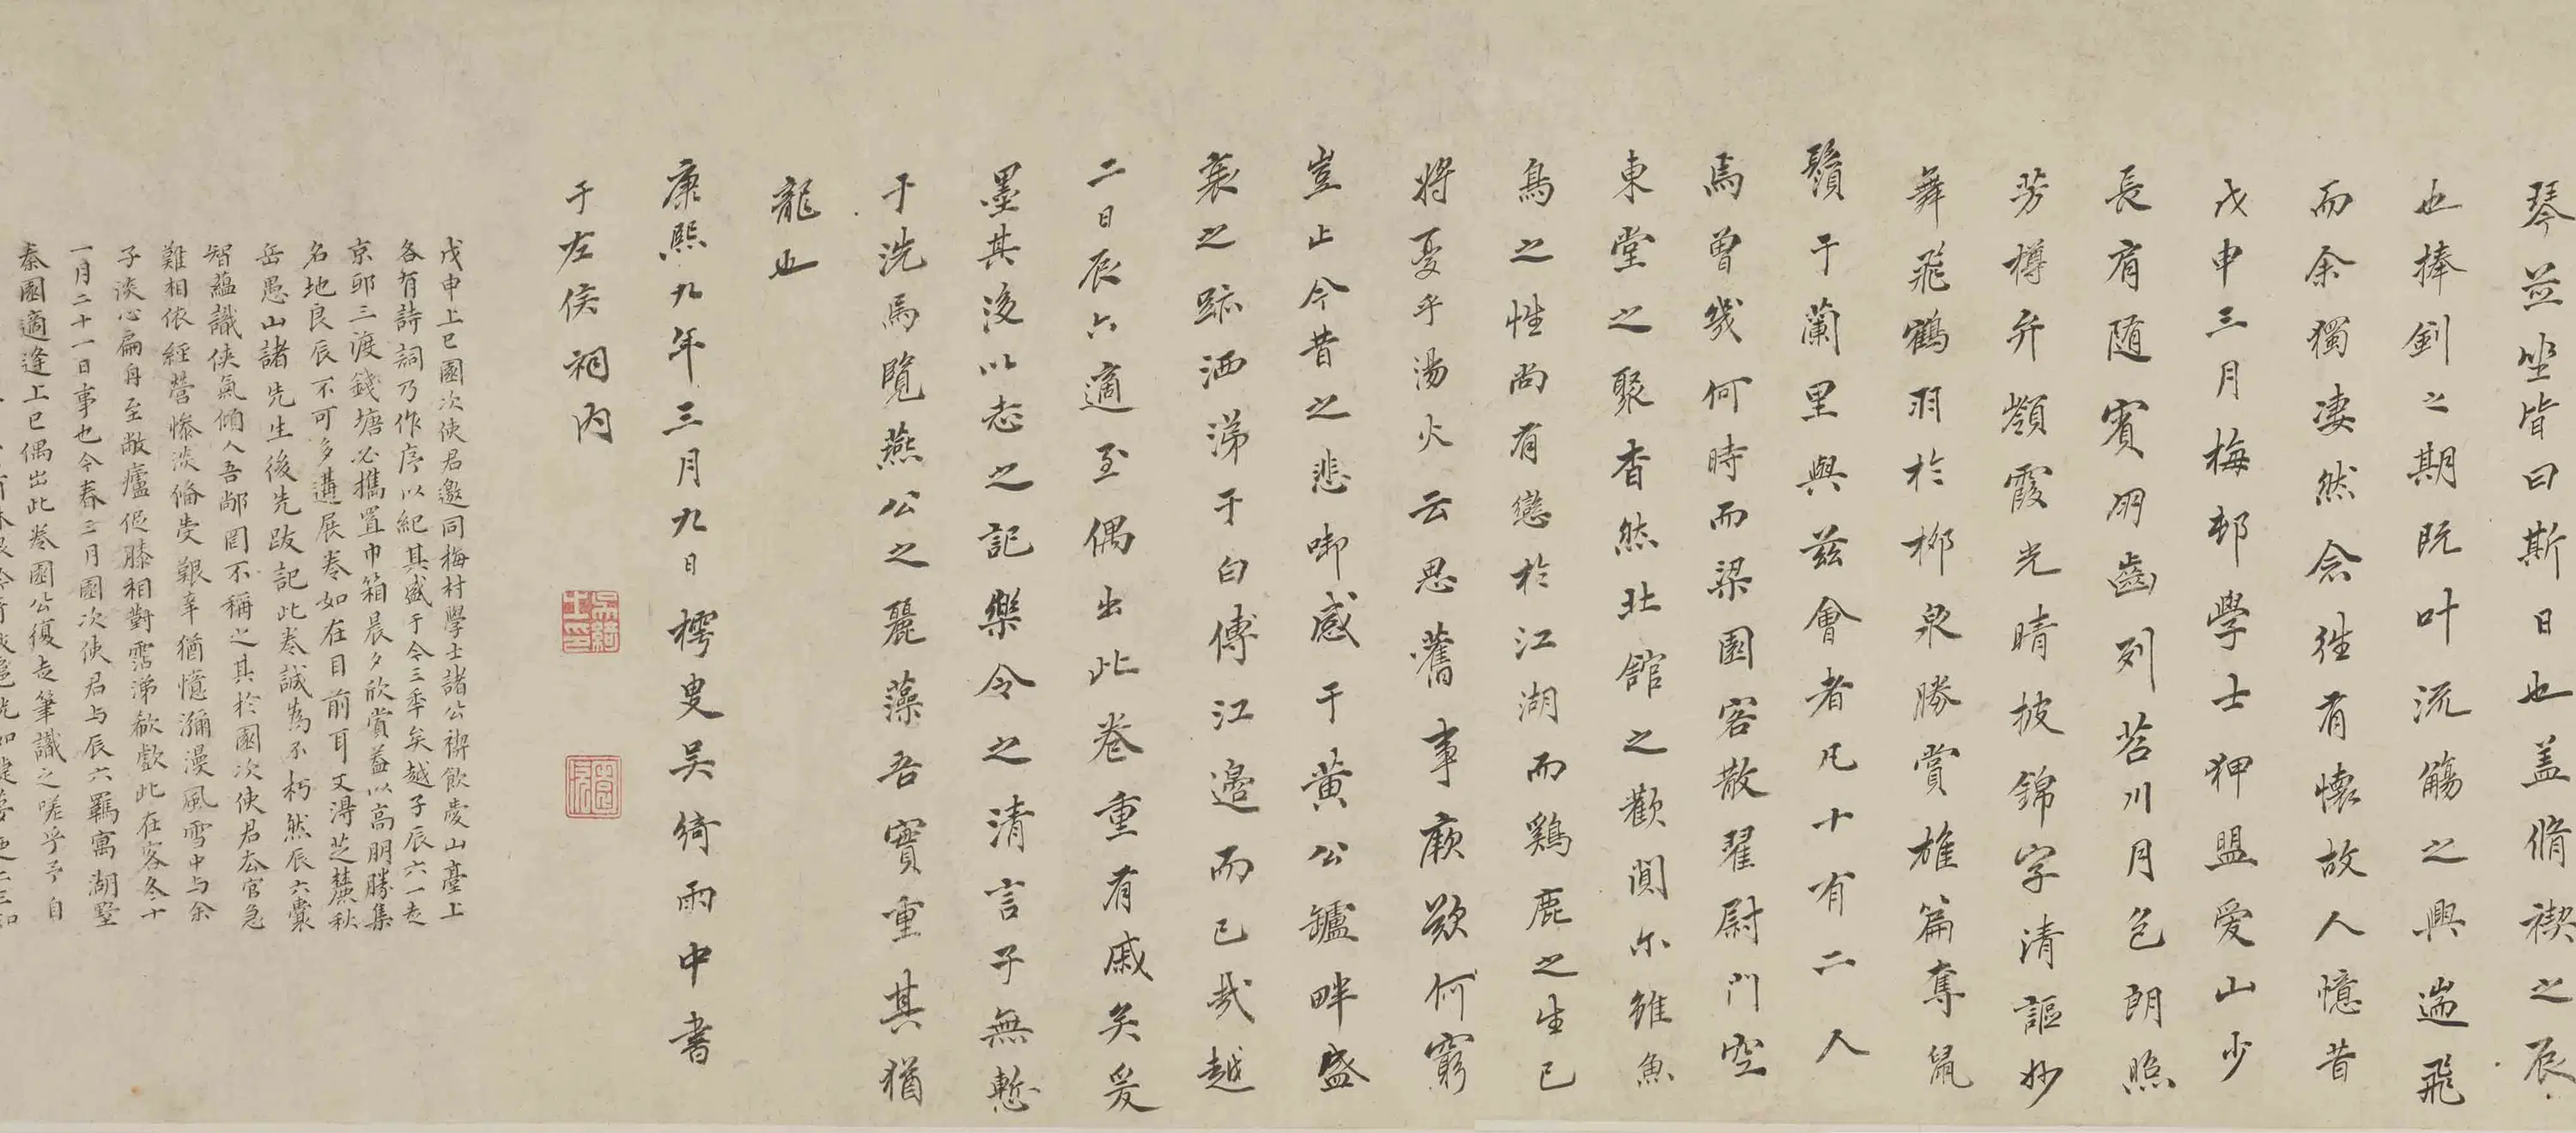 琴並坐皆曰斯日也盖脩禊之辰
也捧劍之期既叶流觴之興遄飛
而余獨凄然念往有懷故人憶昔
戊申三月梅邨學士狎盟愛山少
長肩随賓朋齒列苕川月色朗照
芳樽弁嶺霞光晴披錦字清謳妙
舞飛鶴羽於柳泉勝賞雄篇奪鼠
鬚于蘭里與兹會者凡十有二人
焉曾幾何時而梁園客散翟尉門空
東堂之聚杳然北舘之歡闃尔雖魚
鳥之性尚有戀於江湖而鷄鹿之生已
將憂乎湯火云思舊事厥歎何窮
豈止今昔之悲啣感于黄公罏畔盛
衰之跡洒涕于白傅江邉而已哉越
二日辰六適至偶出此卷重有戚矣爰
墨其後以志之記樂令之清言子無慙
于洗馬覽燕公之麗藻吾實重其猶
龍也
康熙九年三月九日樗叟吴綺雨中書
于左侯祠内
吴綺之印
戊申上巳園次使君邀同梅村學士諸公禊飲愛山臺上
各有詩詞乃作序以紀其盛于今三年矣越子辰六一走
京邸三渡錢塘必攜置巾箱晨夕欣賞益以高朋勝集
名地良辰不可多遘展卷如在目前耳又得芝麓秋
岳愚山諸先生後先跋記此卷誠為不朽然辰六囊
智藴識俠氣傾人吾鄙罔不稱之其於園次使君去官急
難相依經營慘淡備受艱辛猶憶瀰漫風雪中与余
子淡心扁舟至敝廬促膝相對霑涕欷歔此在客冬十
一月二十一日事也今春三月園次使君与辰六羈寓湖墅
秦園適逢上巳偶出此卷園公復走筆識之嗟乎予自